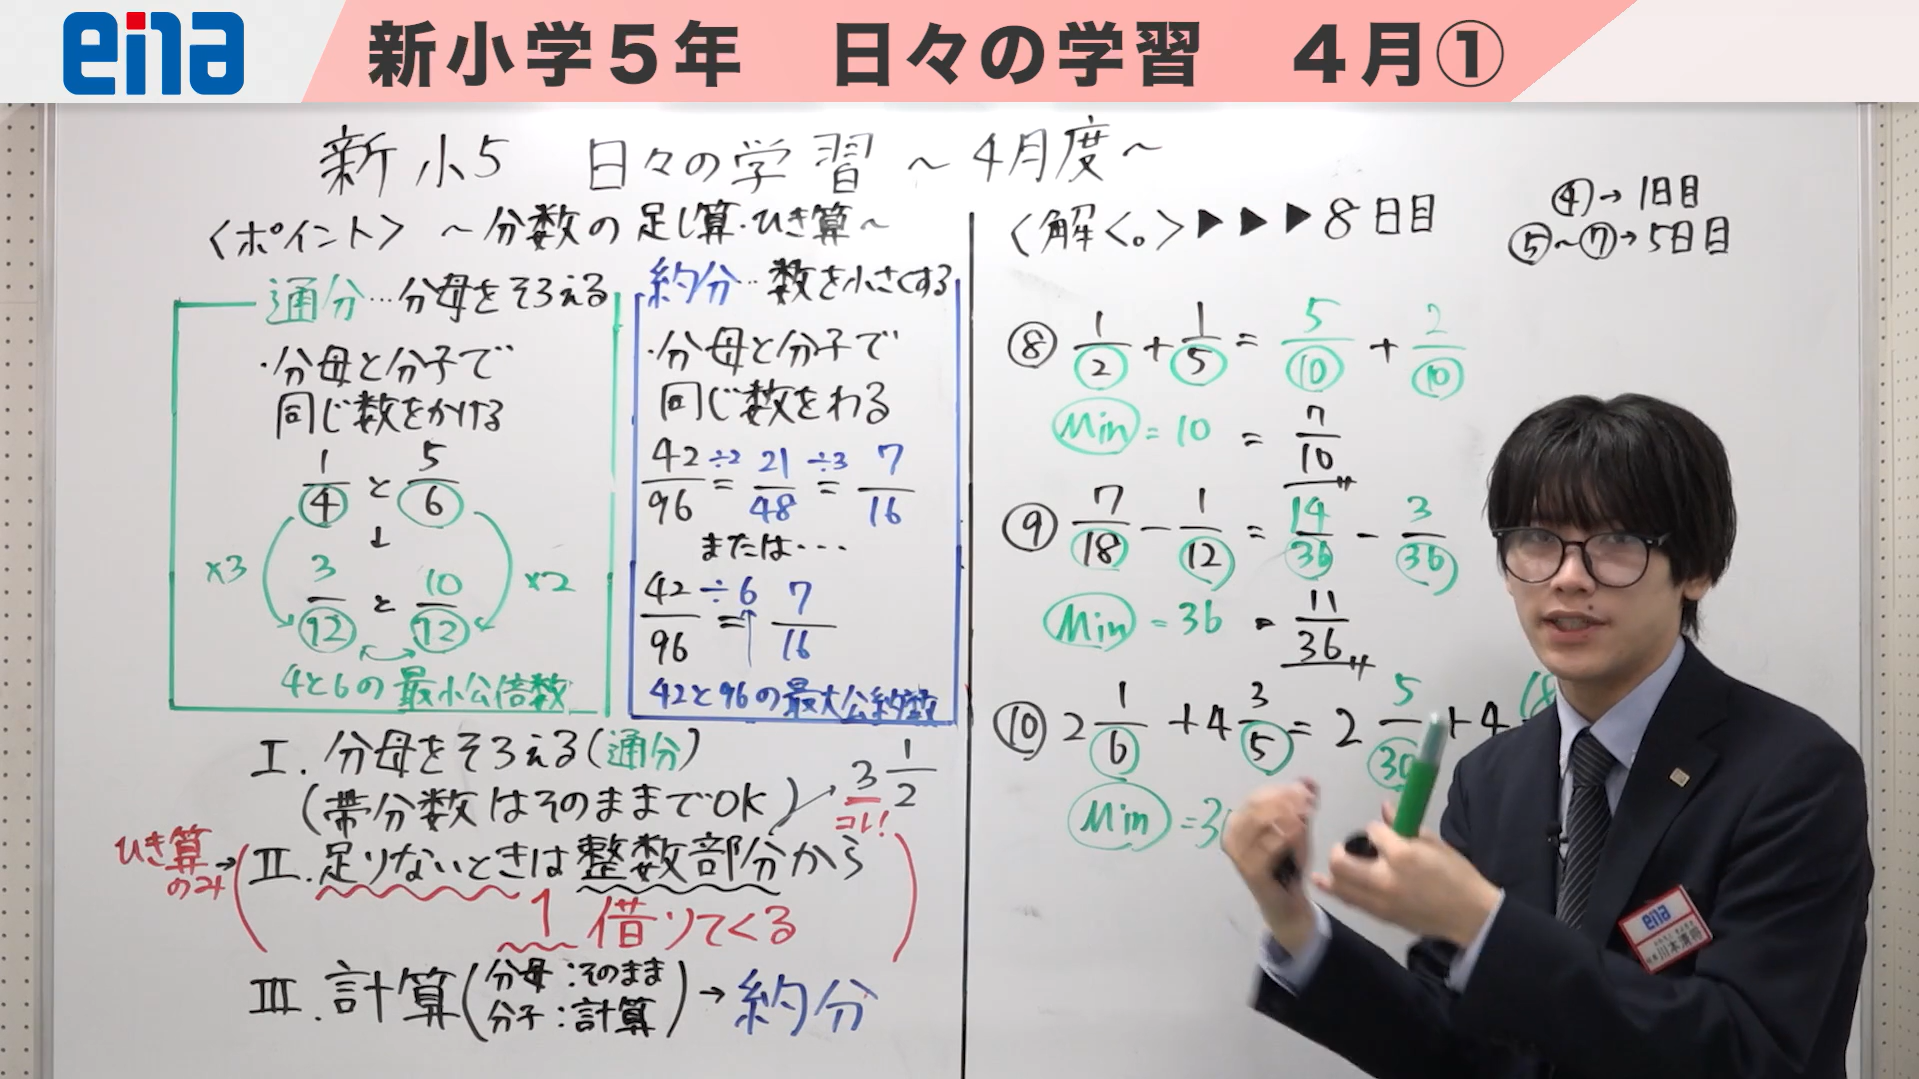 ena 新小学5年 日々の学習 4月①
新小5 日々の学習 ～4月度～
〈ポイント〉 ～分数の足し算・ひき算～
通分…分母をそろえる
・分母と分子で
同じ数をかける
1/4 と 5/6
↓
×3 3/12 と 10/12 ×2
4と6の最小公倍数
約分…数を小さくする
・分母と分子で
同じ数をわる
42/96 ÷2 = 21/48 ÷3 = 7/16
または・・・
42/96 ÷6 = 7/16
42と96の最大公約数
Ⅰ. 分母をそろえる(通分)
(帯分数はそのままでOK) → 3 1/2
コレ!
ひき算のみ→
Ⅱ. 足りないときは整数部分から
1 借りてくる
Ⅲ. 計算(分母:そのまま
分子:計算)→約分
〈解く。〉▶▶▶8日目
④→1日目
⑤～⑦→5日目
⑧ 1/2 + 1/5 = 5/10 + 2/10
Min = 10 = 7/10
⑨ 7/18 - 1/12 = 14/36 - 3/36
Min = 36 = 11/36
⑩ 2 1/6 + 4 3/5 = 2 5/30 + 4 18
Min = 30
ena